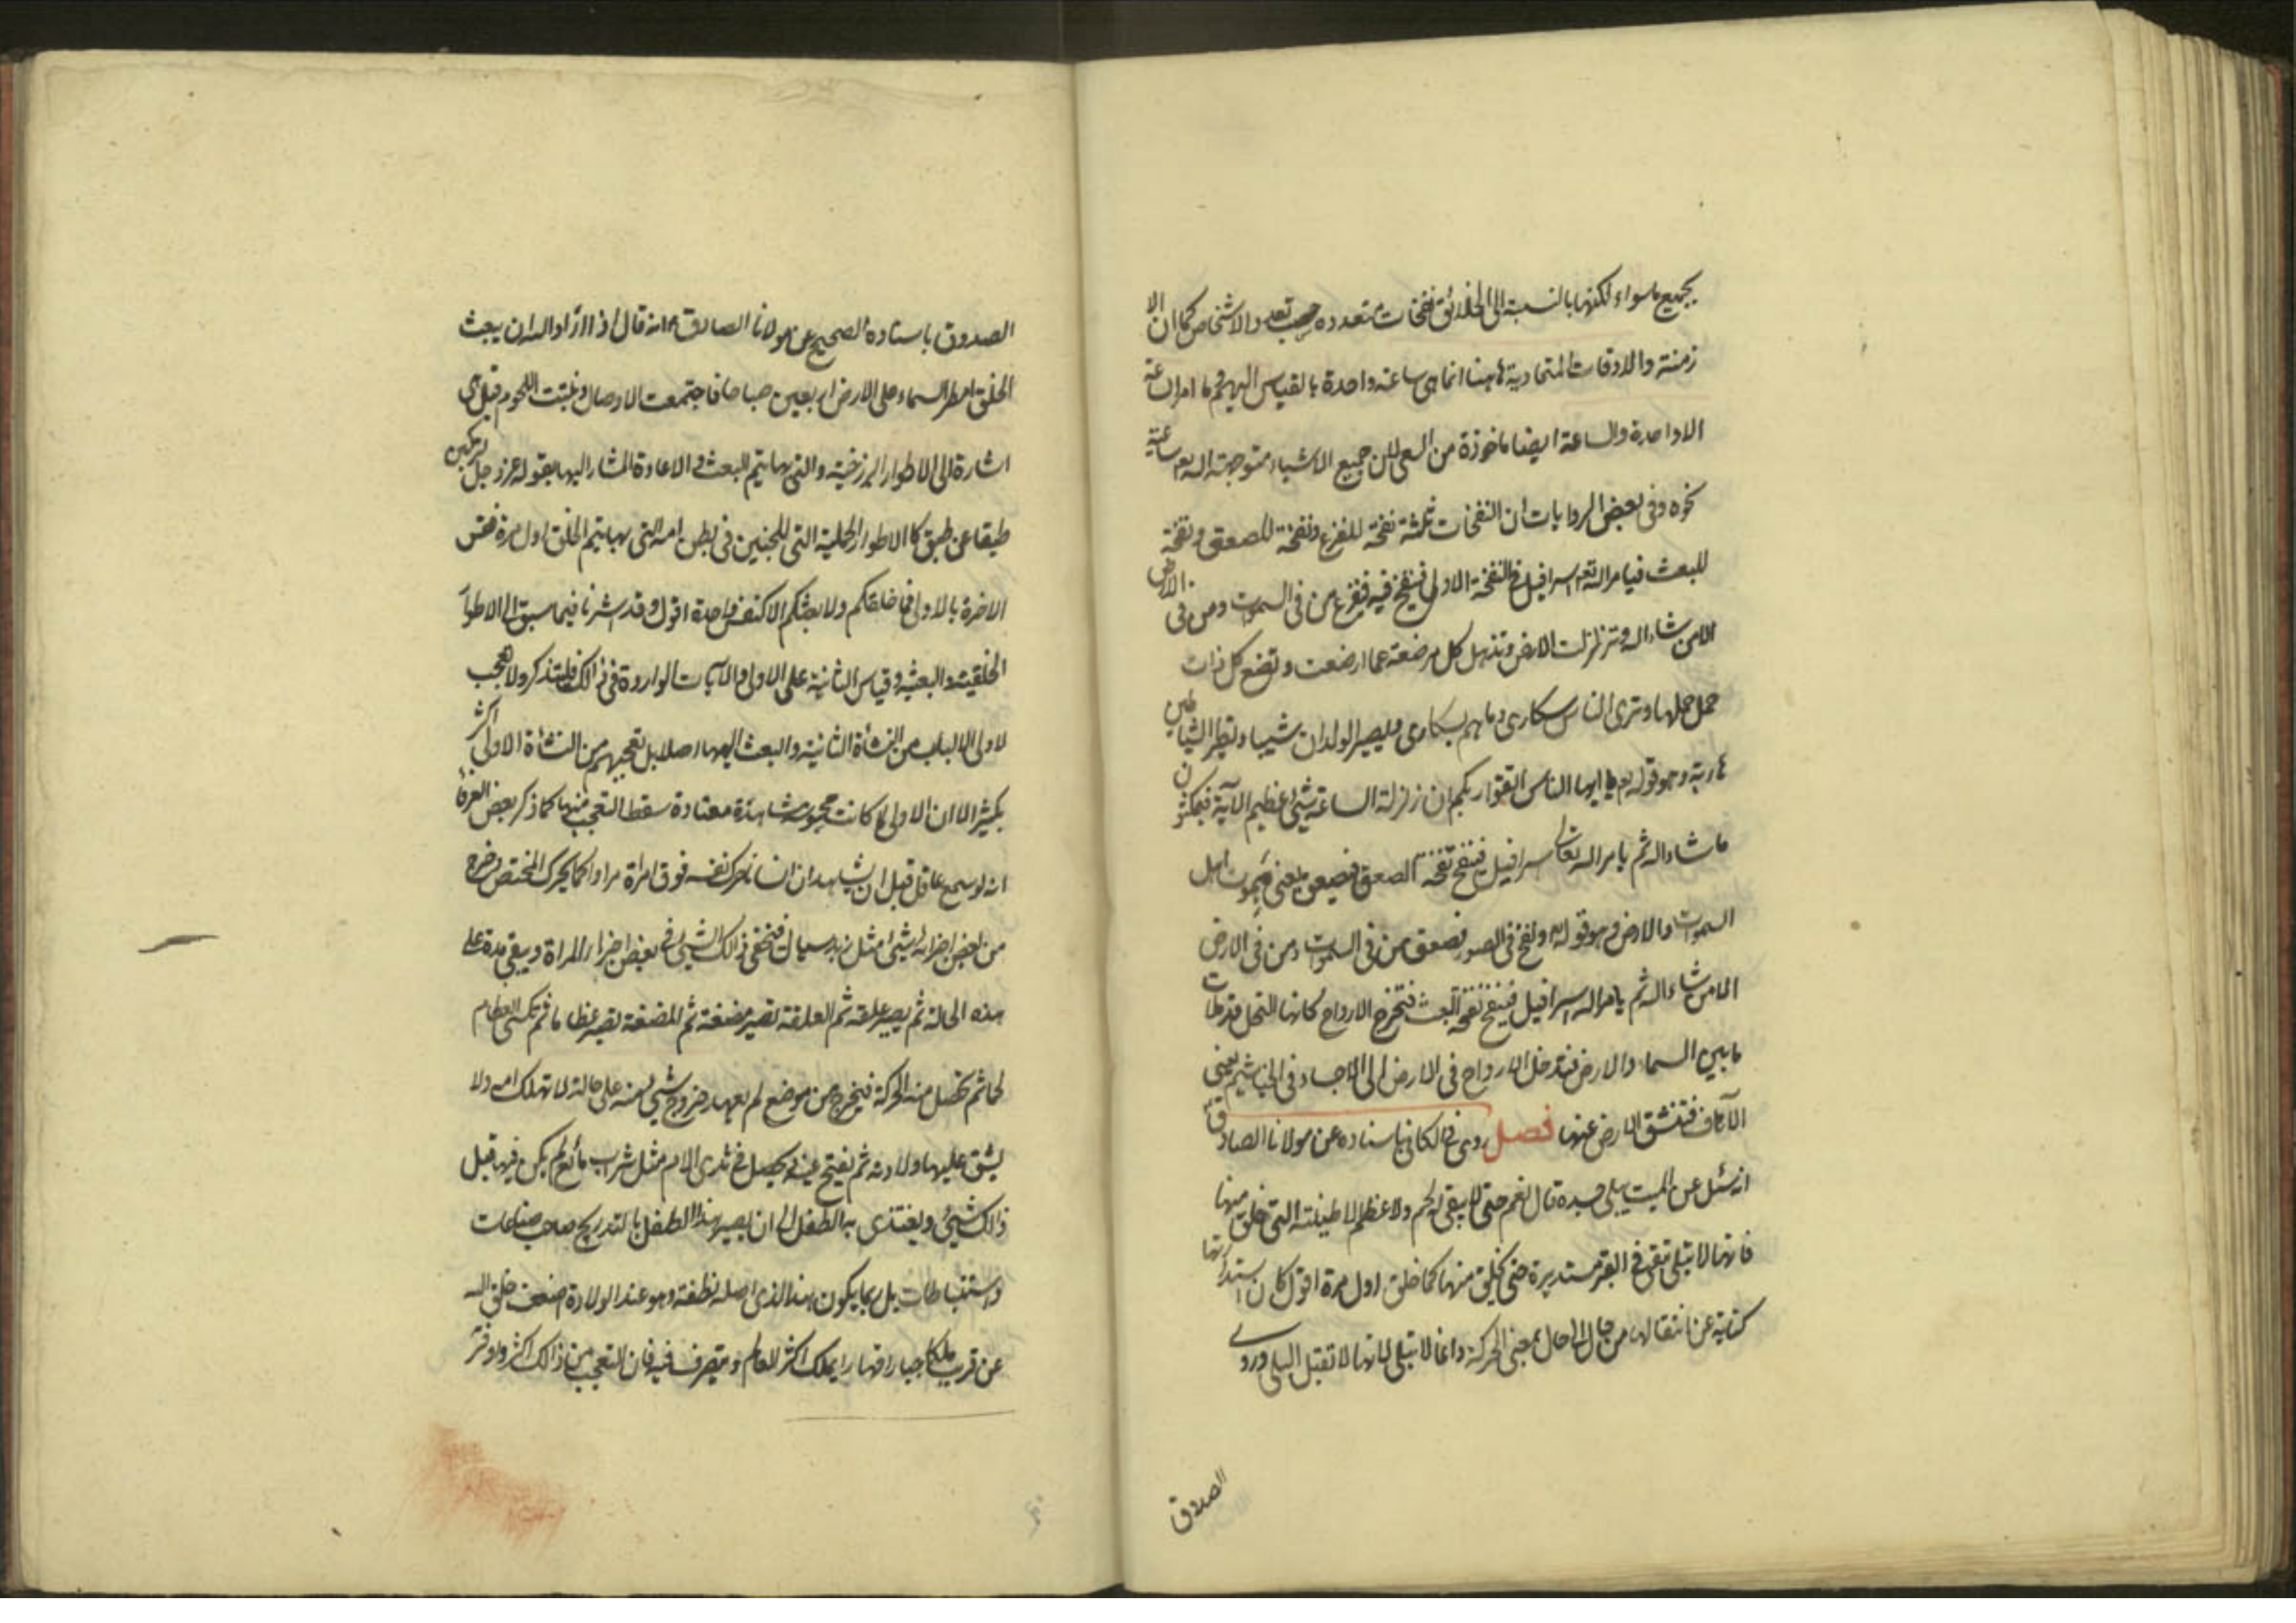 بجميع ما سواه لكنها بالنسبة الى الخلائق نفخات متعدده حسب تعدد الاشخاص كما ان الا
زمنة والاوقات المتمادية هاهنا انما هى ساعة واحدة بالقياس اليهم وما امر الساعة
الا واحدة والساعة ايضا ماخوذة من السعى لان جميع الاشياء متوجهة اليه تعم ساعية
نحوه وفى بعض الروايات ان النفخات ثلثة نفخة للفزع ونفخة للصعق ونفخة
للبعث فيامر الله تعم اسرافيل فى النفخة الاولى فينفخ فيه ففزع من فى السموت ومن فى الارض
الا من شاء الله وتزلزلت الارض وتذهل كل مرضعة عما ارضعت وتضع كل ذات
حمل حملها وترى الناس سكارى وما هم بسكارى ويصير الولدان شيبا وتطير الشياطين
هاربة وهو قوله تعم يا ايها الناس اتقوا ربكم ان زلزلة الساعة شئ عظيم الآية فيمكثون
ما شاء الله ثم يامر الله تعالى اسرافيل فينفخ نفخة الصعق فيصعق يعنى فيموت اهل
السموت والارض وهو قوله ونفخ فى الصور فصعق من فى السموت ومن فى الارض
الا من شاء الله ثم يامر الله اسرافيل فينفخ نفخة البعث فتخرج الارواح كانها النحل قد ملات
ما بين السماء والارض فتدخل الارواح فى الارض الى الاجساد فى الخياشيم يعنى
الآناف فتنشق الارض عنها فصل روى فى الكافى باسناده عن مولانا الصادق
انه سئل عن الميت يبلى جسده قال نعم حتى لا يبقى لحم ولا عظم الا طينته التى خلق منها
فانها لا تبلى تبقى فى القبر مستديرة حتى يخلق منها كما خلق اول مرة اقول كان استدارتها
كناية عن انتقالها من حال الى حال بمعنى الحركة وانما لا تبلى لانها لا تقبل البلى وروى
الصدوق
الصدوق باسناده الصحيح عن مولانا الصادق انه قال اذا اراد الله ان يبعث
الخلق امطر السماء على الارض اربعين صباحا فاجتمعت الاوصال ونبتت اللحوم قيل هى
اشارة الى الاطوار البرزخية والتى بها يتم البعث والاعادة المشار اليها بقوله عز وجل لتركبن
طبقا عن طبق كالاطوار الحملية التى للجنين فى بطن امه التى بها يتم الخلق اول مرة فقس
الاخرة بالاولى فما خلقكم ولا بعثكم الا كنفس واحدة اقول وقد اشرنا فيما سبق الى الاطوار
الخلقية والبعثية وقياس الثانية على الاولى والآيات الواردة فى ذالك فليتذكر ولا تعجب
لاولى الالباب من النشأة الثانية والبعث اليها اصلا بل تعجبهم من النشأة الاولى اكثر
بكثير الا ان الاولى لما كانت محسوسة مشاهدة معتادة سقط التعجب منها كما ذكر بعض العرفا
انه لو سمع عاقل قبل ان يشاهد ان انسانا حرك نفسه فوق امراة مرارا كما يحرك الممخض وخرج
من بعض اجزائه شئ مثل زبد سيال فيخفى ذالك الشئ فى بعض اجزاء المراة ويبقى مدة على
هذه الحالة ثم يصير علقة ثم العلقة تصير مضغة ثم المضغة تصير عظاما ثم تكسى العظام
لحما ثم تحصل منه الحركة فيخرج من موضع لم يعهد خروج شئ منه على حالة لا تهلك امه ولا
يشق عليها ولادته ثم يفتح عينه ويحصل فى ثدى الام مثل شراب مائع لم يكن فيها قبل
ذالك شئ ويغتذى به الطفل الى ان يصير هذا الطفل بالتدريج صاحب صناعات
واستنباطات بل ربما يكون هذا الذى اصله نطفة وهو عند الولادة اضعف خلق الله
عن قريب ملكا جبارا قهارا يملك اكثر العالم ويتصرف فيه فان التعجب من ذالك اكثر واوفر